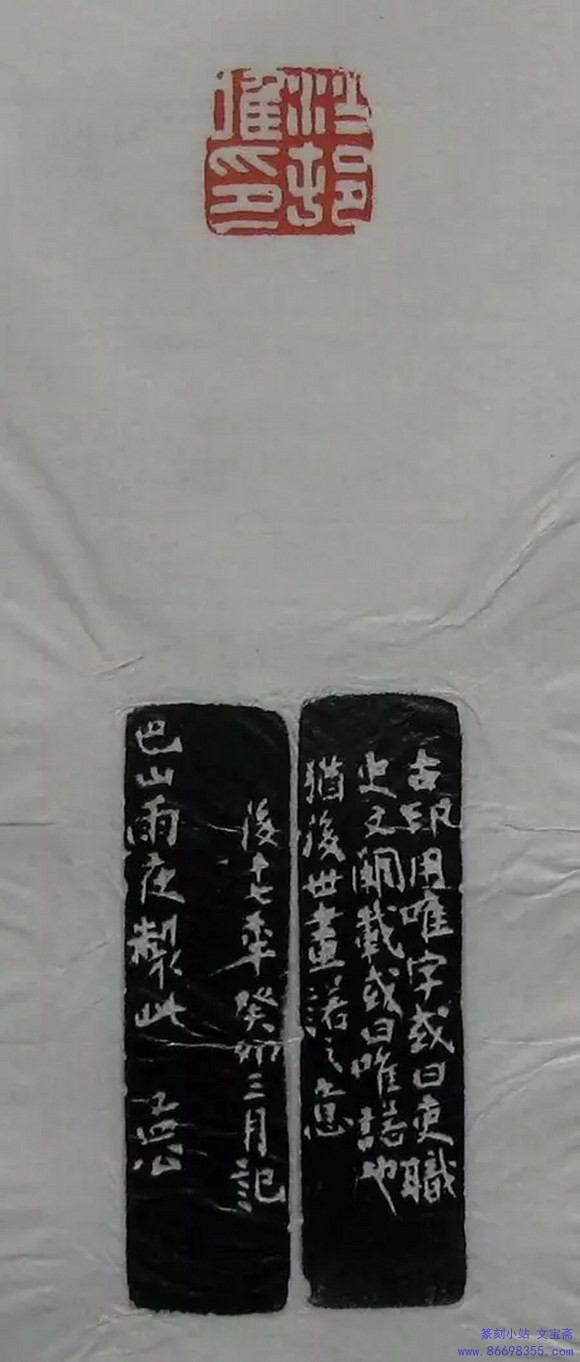 江邨
唯印
古印用唯字或曰吏職
史文闕載或曰唯諾也
猶後世畫諾之意
後十七年癸卯三月記
巴山雨夜製此
篆刻小站 文宝斋
www.86698355.com